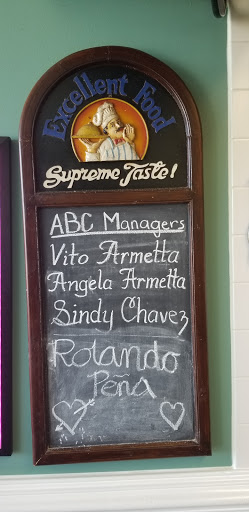 Excellent Food
Supreme Taste!
ABC Managers
Vito Armetta
Angela Armetta
Sindy Chavez
Rolando
Peña